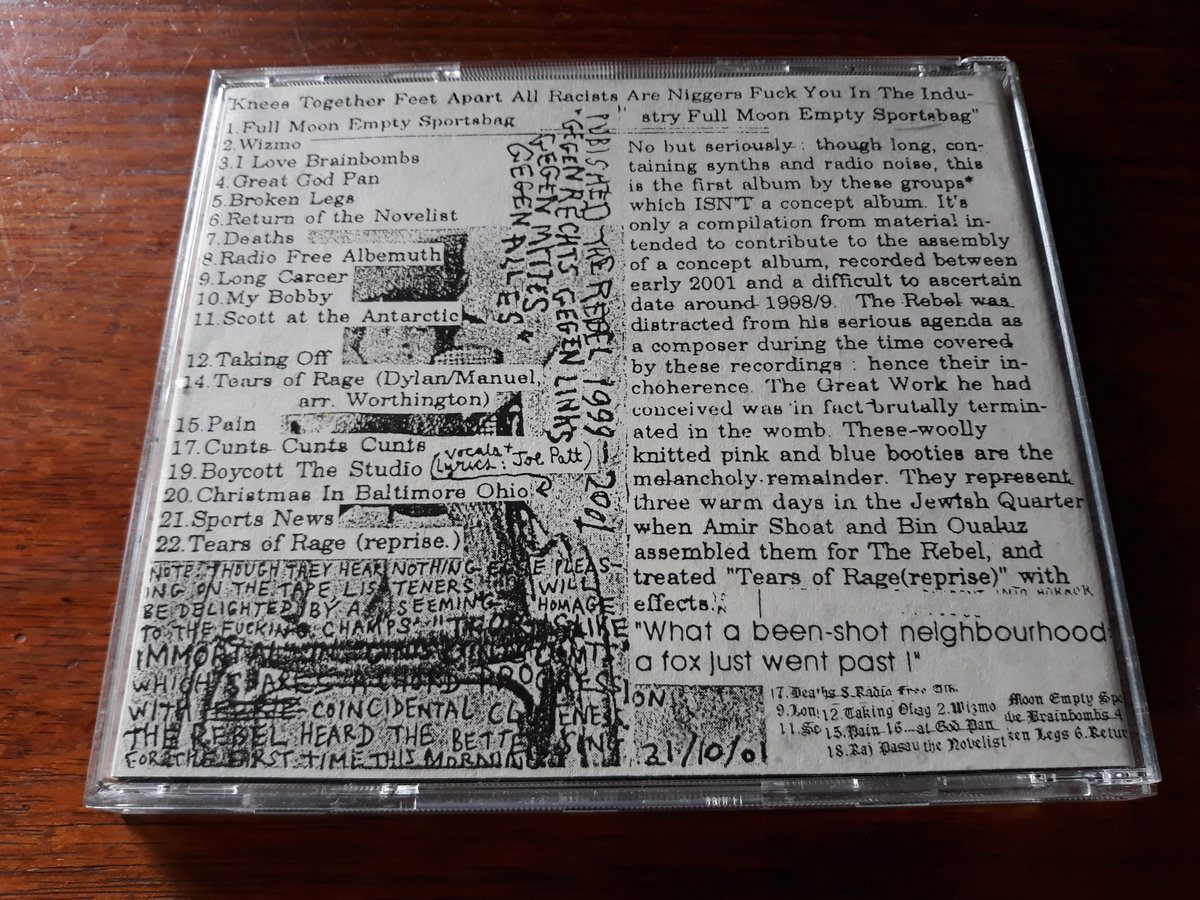 "Knees Together Feet Apart All Racists Are Niggers Fuck You In The Indu-
stry Full Moon Empty Sportsbag"
1.Full Moon Empty Sportsbag
2.Wizmo
3.I Love Brainbombs
4.Great God Pan
5.Broken Legs
6.Return of the Novelist
7.Deaths
8.Radio Free Albemuth
9.Long Carcer
10.My Bobby
11.Scott at the Antarctic
12.Taking Off
14.Tears of Rage (Dylan/Manuel,
arr. Worthington)
15.Pain
17.Cunts Cunts Cunts
19.Boycott The Studio (vocals +
lyrics: Joe Patt)
20.Christmas In Baltimore Ohio
21.Sports News
22.Tears of Rage (reprise.)
NOTE: THOUGH THEY HEAR NOTHING ELSE PLEAS-
ING ON THE TAPE LISTENERS WILL
BE DELIGHTED BY A SEEMING HOMAGE
TO THE FUCKING CHAMPS'
IMMORTAL
WHICH A CHORD
WITH COINCIDENTAL
THE REBEL HEARD THE
FOR THE FIRST TIME THIS MORNING
21/10/01
PUBLISHED THE REBEL 1999-2001
"GEGEN RECHTS GEGEN LINKS
GEGEN MITTES
GEGEN ALLES"
No but seriously : though long, con-
taining synths and radio noise, this
is the first album by these groups*
which ISN'T a concept album. It's
only a compilation from material in-
tended to contribute to the assembly
of a concept album, recorded between
early 2001 and a difficult to ascertain
date around 1998/9. The Rebel was
distracted from his serious agenda as
a composer during the time covered
by these recordings : hence their in-
choherence. The Great Work he had
conceived was in fact brutally termin-
ated in the womb. These woolly
knitted pink and blue booties are the
melancholy remainder. They represent
three warm days in the Jewish Quarter
when Amir Shoat and Bin Oualuz
assembled them for The Rebel, and
treated "Tears of Rage(reprise)" with
effects.
"What a been-shot neighbourhood
a fox just went past !"
17.Deaths 8.Radio Free
9.Lon 12.Taking 2.Wizmo Moon Empty
11.Sc 15.Pain 16. at God Pan Brainbombs 4
18.Raj the Novelist Legs 6.Retur